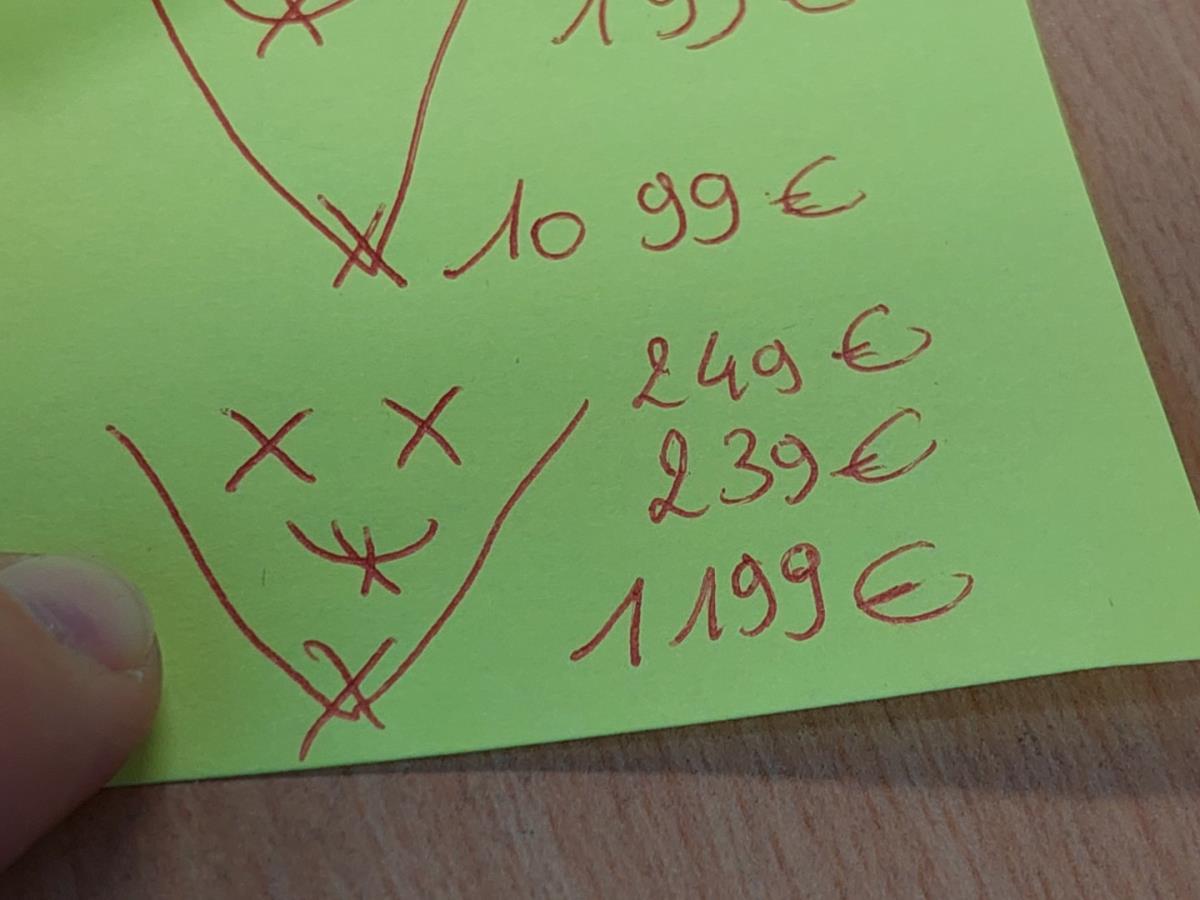 10 99 €
249 €
239 €
1199 €